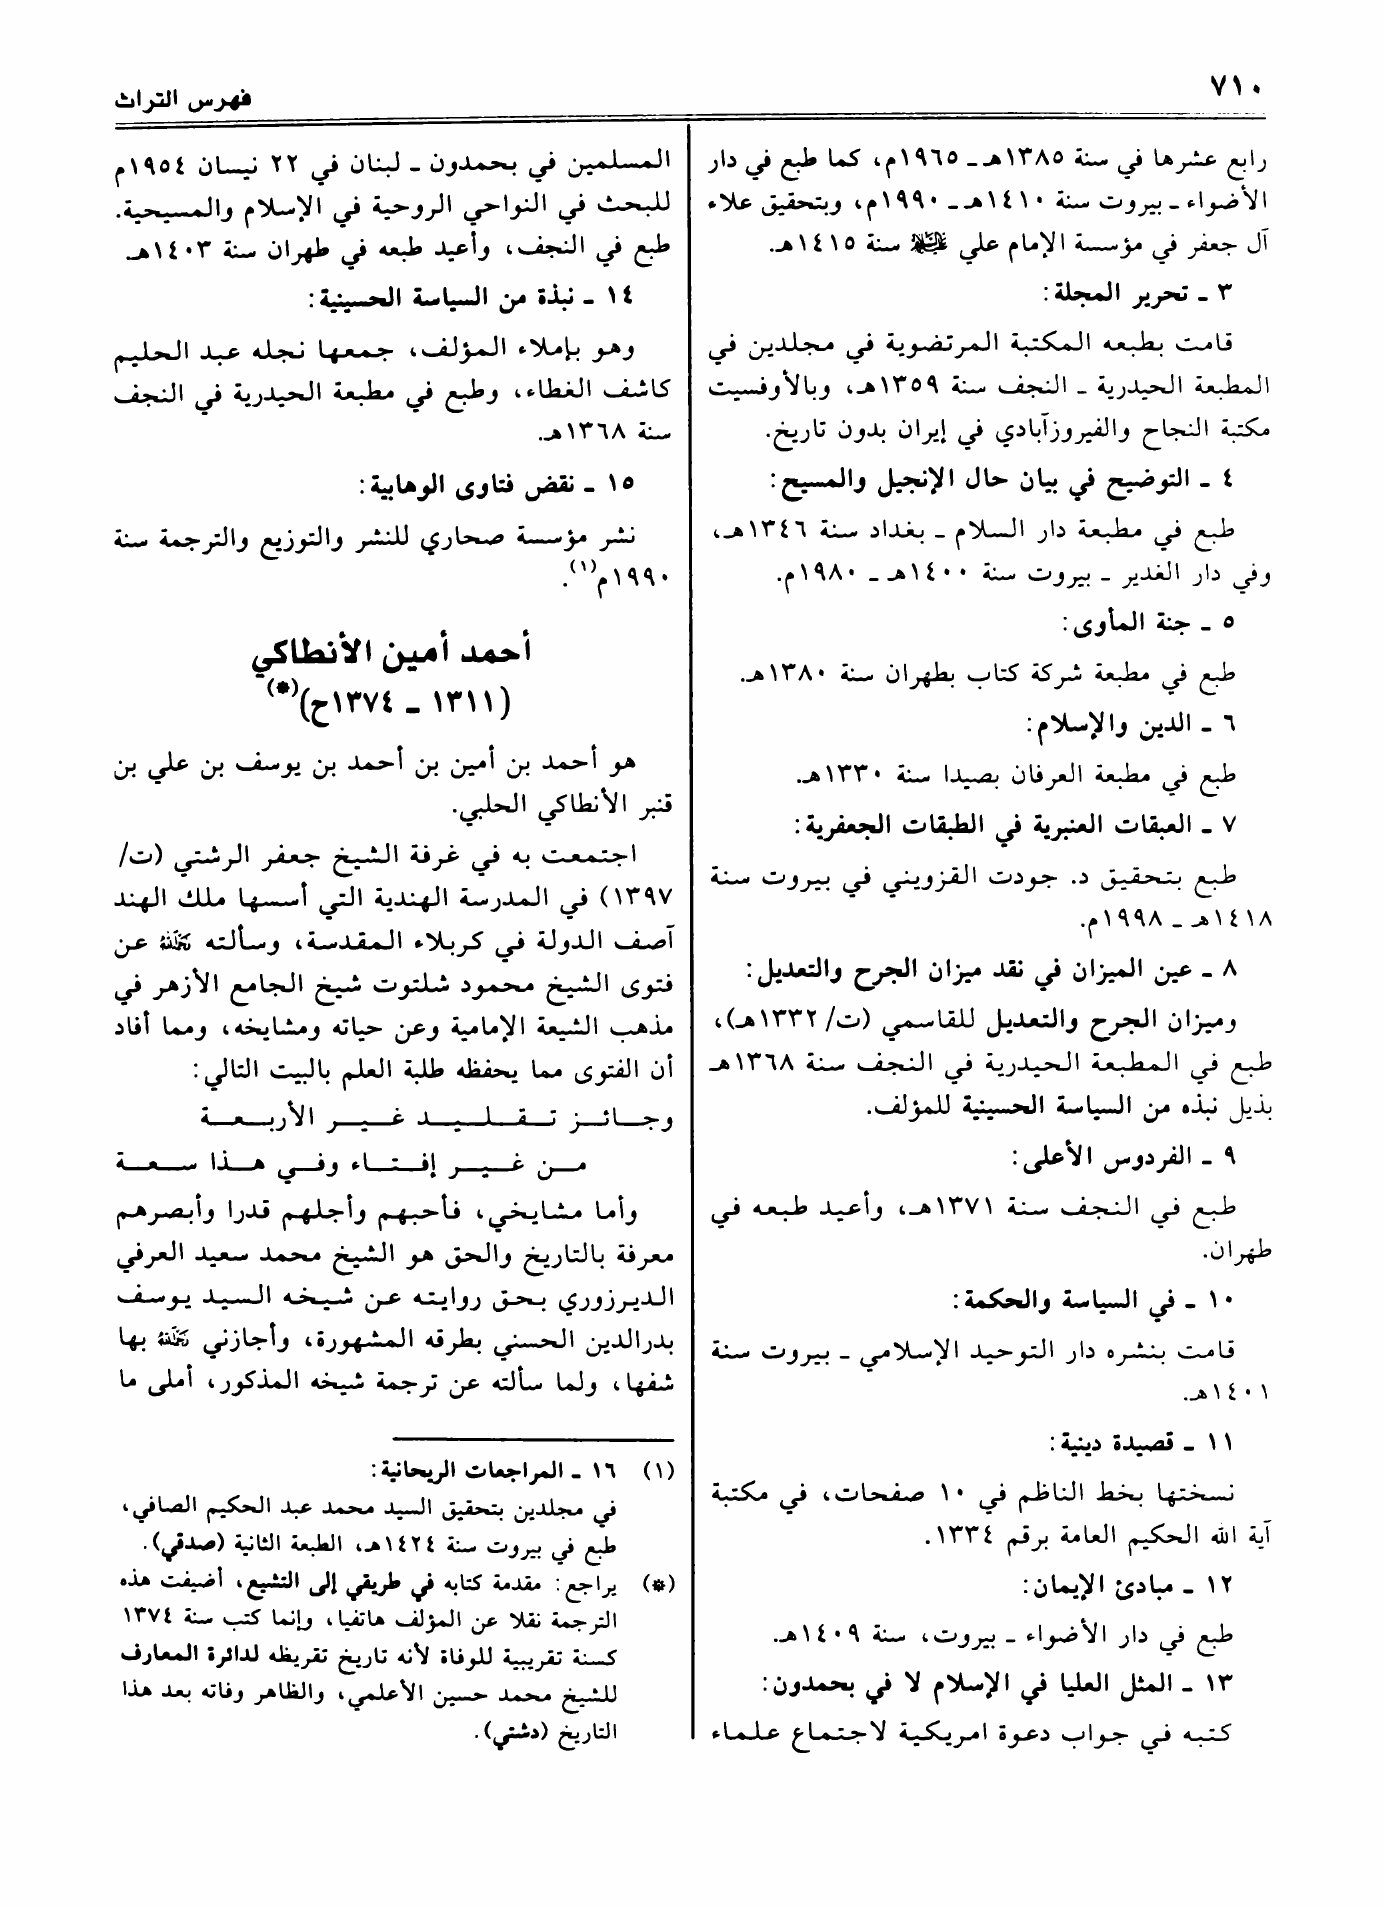 ٧١٠
فهرس التراث
رابع عشرها في سنة ١٣٨٥هـ ـ ١٩٦٥م، كما طبع في دار
الأضواء ـ بيروت سنة ١٤١٠هـ ـ ١٩٩٠م، وبتحقيق علاء
آل جعفر في مؤسسة الإمام علي عليه السلام سنة ١٤١٥هـ.
٣ ـ تحرير المجلة:
قامت بطبعه المكتبة المرتضوية في مجلدين في
المطبعة الحيدرية ـ النجف سنة ١٣٥٩هـ، وبالأوفسيت
مكتبة النجاح والفيروزآبادي في إيران بدون تاريخ.
٤ ـ التوضيح في بيان حال الإنجيل والمسيح:
طبع في مطبعة دار السلام ـ بغداد سنة ١٣٤٦هـ،
وفي دار الغدير ـ بيروت سنة ١٤٠٠هـ ـ ١٩٨٠م.
٥ ـ جنة المأوى:
طبع في مطبعة شركة كتاب بطهران سنة ١٣٨٠هـ.
٦ ـ الدين والإسلام:
طبع في مطبعة العرفان بصيدا سنة ١٣٣٠هـ.
٧ ـ العبقات العنبرية في الطبقات الجعفرية:
طبع بتحقيق د. جودت القزويني في بيروت سنة
١٤١٨هـ ـ ١٩٩٨م.
٨ ـ عين الميزان في نقد ميزان الجرح والتعديل:
وميزان الجرح والتعديل للقاسمي (ت/ ١٣٣٢هـ)،
طبع في المطبعة الحيدرية في النجف سنة ١٣٦٨هـ
بذيل نبذه من السياسة الحسينية للمؤلف.
٩ ـ الفردوس الأعلى:
طبع في النجف سنة ١٣٧١هـ، وأعيد طبعه في
طهران.
١٠ ـ في السياسة والحكمة:
قامت بنشره دار التوحيد الإسلامي ـ بيروت سنة
١٤٠١هـ.
١١ ـ قصيدة دينية:
نسختها بخط الناظم في ١٠ صفحات، في مكتبة
آية الله الحكيم العامة برقم ١٣٣٤.
١٢ ـ مبادئ الإيمان:
طبع في دار الأضواء ـ بيروت، سنة ١٤٠٩هـ.
١٣ ـ المثل العليا في الإسلام لا في بحمدون:
كتبه في جواب دعوة امريكية لاجتماع علماء
المسلمين في بحمدون ـ لبنان في ٢٢ نيسان ١٩٥٤م
للبحث في النواحي الروحية في الإسلام والمسيحية.
طبع في النجف، وأعيد طبعه في طهران سنة ١٤٠٣هـ.
١٤ ـ نبذة من السياسة الحسينية:
وهو بإملاء المؤلف، جمعها نجله عبد الحليم
كاشف الغطاء، وطبع في مطبعة الحيدرية في النجف
سنة ١٣٦٨هـ.
١٥ ـ نقض فتاوى الوهابية:
نشر مؤسسة صحاري للنشر والتوزيع والترجمة سنة
١٩٩٠م(١).
أحمد أمين الأنطاكي
(١٣١١ ـ ١٣٧٤ح)(*)
هو أحمد بن أمين بن أحمد بن يوسف بن علي بن
قنبر الأنطاكي الحلبي.
اجتمعت به في غرفة الشيخ جعفر الرشتي (ت/
١٣٩٧) في المدرسة الهندية التي أسسها ملك الهند
آصف الدولة في كربلاء المقدسة، وسألته رحمه الله عن
فتوى الشيخ محمود شلتوت شيخ الجامع الأزهر في
مذهب الشيعة الإمامية وعن حياته ومشايخه، ومما أفاد
أن الفتوى مما يحفظه طلبة العلم بالبيت التالي:
وجائز تقليد غير الأربعة
من غير إفتاء وفي هذا سعة
وأما مشايخي، فأحبهم وأجلهم قدرا وأبصرهم
معرفة بالتاريخ والحق هو الشيخ محمد سعيد العرفي
الديرزوري بحق روايته عن شيخه السيد يوسف
بدرالدين الحسني بطرقه المشهورة، وأجازني رحمه الله بها
شفها، ولما سألته عن ترجمة شيخه المذكور، أملى ما
(١) ١٦ ـ المراجعات الريحانية:
في مجلدين بتحقيق السيد محمد عبد الحكيم الصافي،
طبع في بيروت سنة ١٤٢٤هـ، الطبعة الثانية (صدقي).
(*) يراجع: مقدمة كتابه في طريقي إلى التشيع، أضيفت هذه
الترجمة نقلا عن المؤلف هاتفيا، وإنما كتب سنة ١٣٧٤
كسنة تقريبية للوفاة لأنه تاريخ تقريظه لدائرة المعارف
للشيخ محمد حسين الأعلمي، والظاهر وفاته بعد هذا
التاريخ (دشتي).